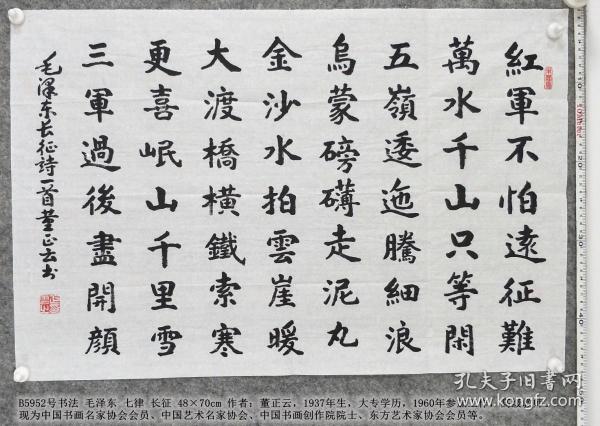 紅軍不怕遠征難
萬水千山只等閑
五嶺逶迤騰細浪
烏蒙磅礴走泥丸
金沙水拍雲崖暖
大渡橋橫鐵索寒
更喜岷山千里雪
三軍過後盡開顏
毛澤东长征詩一首董正云书
B5952号书法 毛泽东 七律 长征 48×70cm 作者：董正云，1937年生，大专学历，1960年参
现为中国书画名家协会会员、中国艺术名家协会、中国书画创作院院士、东方艺术家协会会员等。
孔夫子旧书网